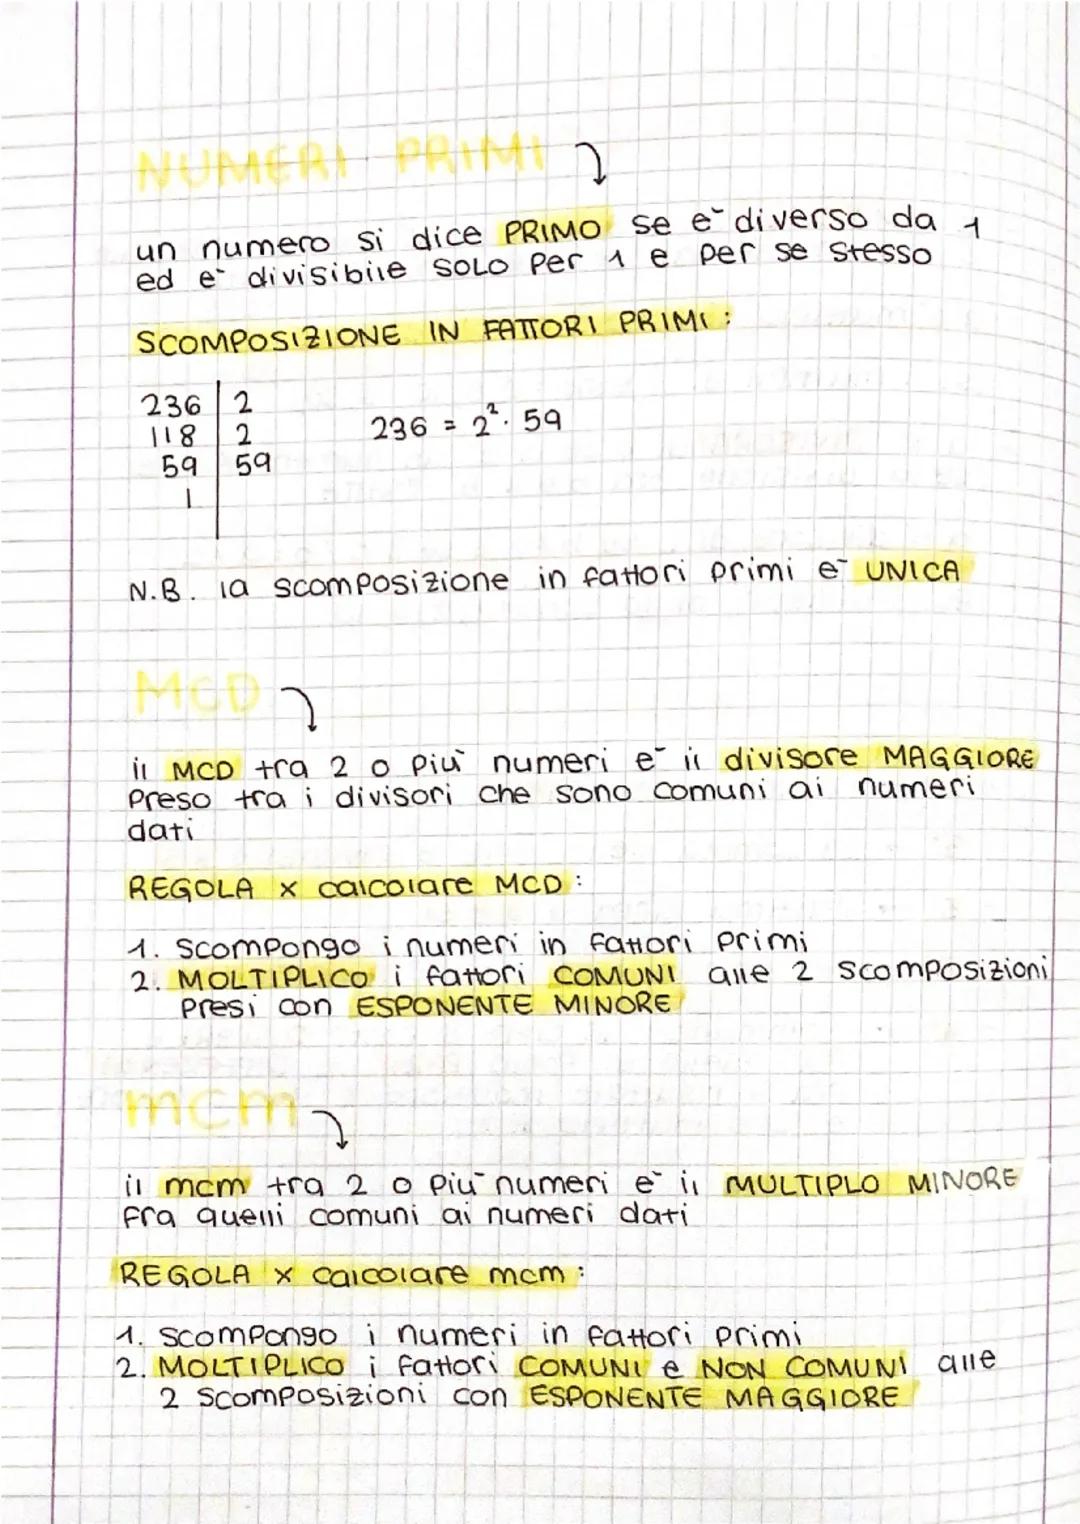 NUMERI PRIMI
un numero si dice PRIMO se è diverso da 1
ed è divisibile SOLO per 1 e per se stesso
SCOMPOSIZIONE IN FATTORI PRIMI:
236 | 2
118 | 2
59 | 59
1
236 = 2². 59
N.B. la scomposizione in fattori primi è UNICA
MCD
il MCD tra 2 o più numeri è il divisore MAGGIORE
Preso tra i divisori che sono comuni ai numeri
dati
REGOLA x calcolare MCD:
1. Scompongo i numeri in fattori primi
2. MOLTIPLICO i fattori COMUNI alle 2 scomposizioni
Presi con ESPONENTE MINORE
mcm
il mcm tra 2 o più numeri è il MULTIPLO MINORE
fra quelli comuni ai numeri dati
REGOLA x calcolare mcm:
1. Scompongo i numeri in fattori primi
2. MOLTIPLICO i fattori COMUNI e NON COMUNI alle
2 scomposizioni con ESPONENTE MAGGIORE